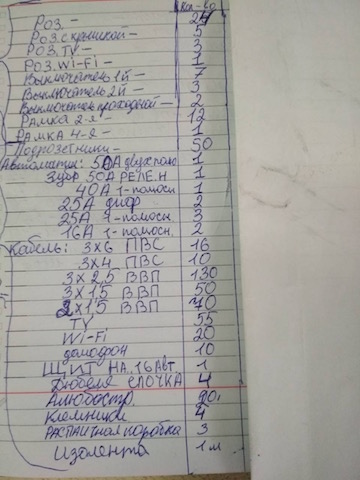 Кол-во
Роз. - 24
Роз. с крышкой - 5
Роз. TV - 3
Роз. Wi-Fi - 1
Выключатель 1й - 7
Выключатель 2й - 3
Выключатель проходной - 2
Рамка 2-я - 12
Рамка 4-я - 1
Подрозетники - 50
Автоматы: 50А двухполю 1
50А РЕЛЕ.Н 1
40А 1-полюсн 1
25А диф 2
25А 1-полюсн 3
16А 1-полюсн. 2
Кабель: 3х6 ПВС 16
3х4 ПВС 10
3х2,5 ВВП 130
3х1,5 ВВП 50
2х1,5 ВВП 70
TV 55
Wi-Fi 20
домофон 10
ЩИТ НА 16 Авт. 1
Дюбеля ЁЛОЧКА 4
Алюбастр 20
Клемники 4
РАСПАИЧНАЯ коробка 3
Изолента 1 м